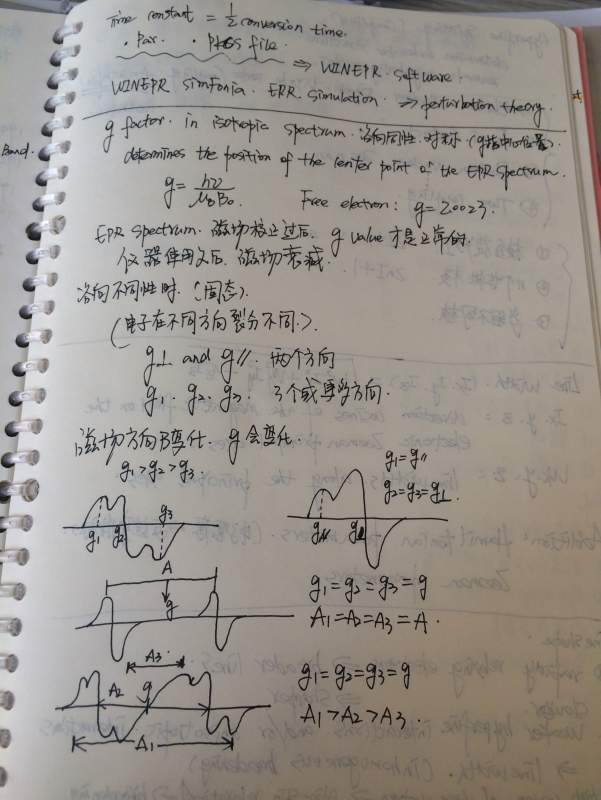 Time constant = 1/2 conversion time.
· Par. · PHGS file.
⇒ WINEPR software.
WINEPR simfonia. EPR simulation. ⇒ perturbation theory.
g factor. in isotopic spectrum. 各向同性. 对称 (g指中心位置).
Band. determines the position of the center point of the EPR spectrum.
g = hν/μBB0 Free electron: g=2.0023.
EPR spectrum. 磁场校正过后, g value 才是正常的.
仪器使用久后, 磁场衰减.
各向不同性时. (固态).
(电子在不同方向裂分不同.).
g⊥ and g//. 两个方向
g1. g2. g3. 3个或更多方向.
磁场方向B变化. g会变化.
g1>g2>g3.
g1=g//
g2=g3=g⊥.
g1 g2 g3
g// g⊥
A
g
g1=g2=g3=g
A1=A2=A3=A.
A3.
A2 g
A1
g1=g2=g3=g
A1>A2>A3.